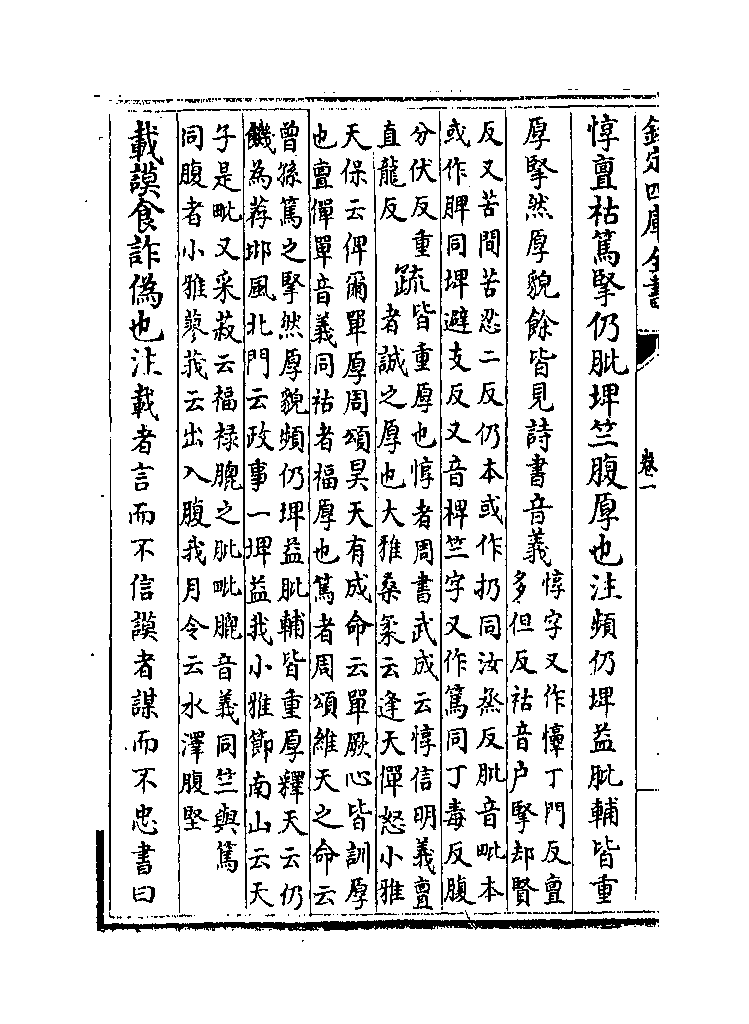 欽定四庫全書
卷一
惇亶祜篤掔仍肶埤竺腹厚也注頻仍埤益肶輔皆重
厚掔然厚貌餘皆見詩書音義
惇字又作憞丁門反亶
多但反祜音户掔却賢
反又苦間苦忍二反仍本或作扔同汝烝反肶音毗本
或作脾同埤避支反又音椑竺字又作篤同丁毒反腹
分伏反重
直龍反
疏
皆重厚也惇者周書武成云惇信明義亶
者誠之厚也大雅桑柔云逢天僤怒小雅
天保云俾爾單厚周頌昊天有成命云單厥心皆訓厚
也亶僤單音義同祜者福厚也篤者周頌維天之命云
曾孫篤之掔然厚貌頻仍埤益肶輔皆重厚釋天云仍
饑為荐邶風北門云政事一埤益我小雅節南山云天
子是毗又采菽云福禄膍之肶毗膍音義同竺與篤
同腹者小雅蓼莪云出入腹我月令云水澤腹堅
載謨食詐偽也注載者言而不信謨者謀而不忠書曰